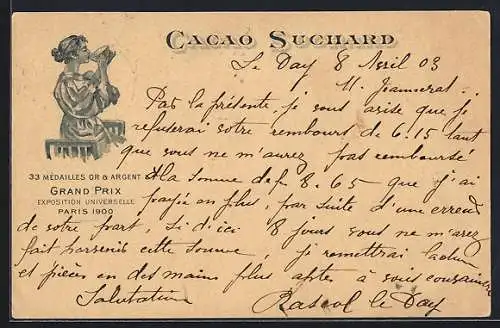 CACAO SUCHARD
Le Day 8 Avril 03
M. Jeanneret
Par la présente, je vous avise que je
refuserai votre rembours de 6.15 tant
que vous ne m'aurez pas remboursé
33 MÉDAILLES OR & ARGENT
GRAND PRIX
EXPOSITION UNIVERSELLE
PARIS 1900
la somme de f 8.65 que j'ai
payée en plus, par suite d'une erreur
de votre part, si d'ici 8 jours vous ne m'avez
fait parvenir cette somme, je remettrai
et pièces en des mains plus aptes à vous
Salutation
le Day